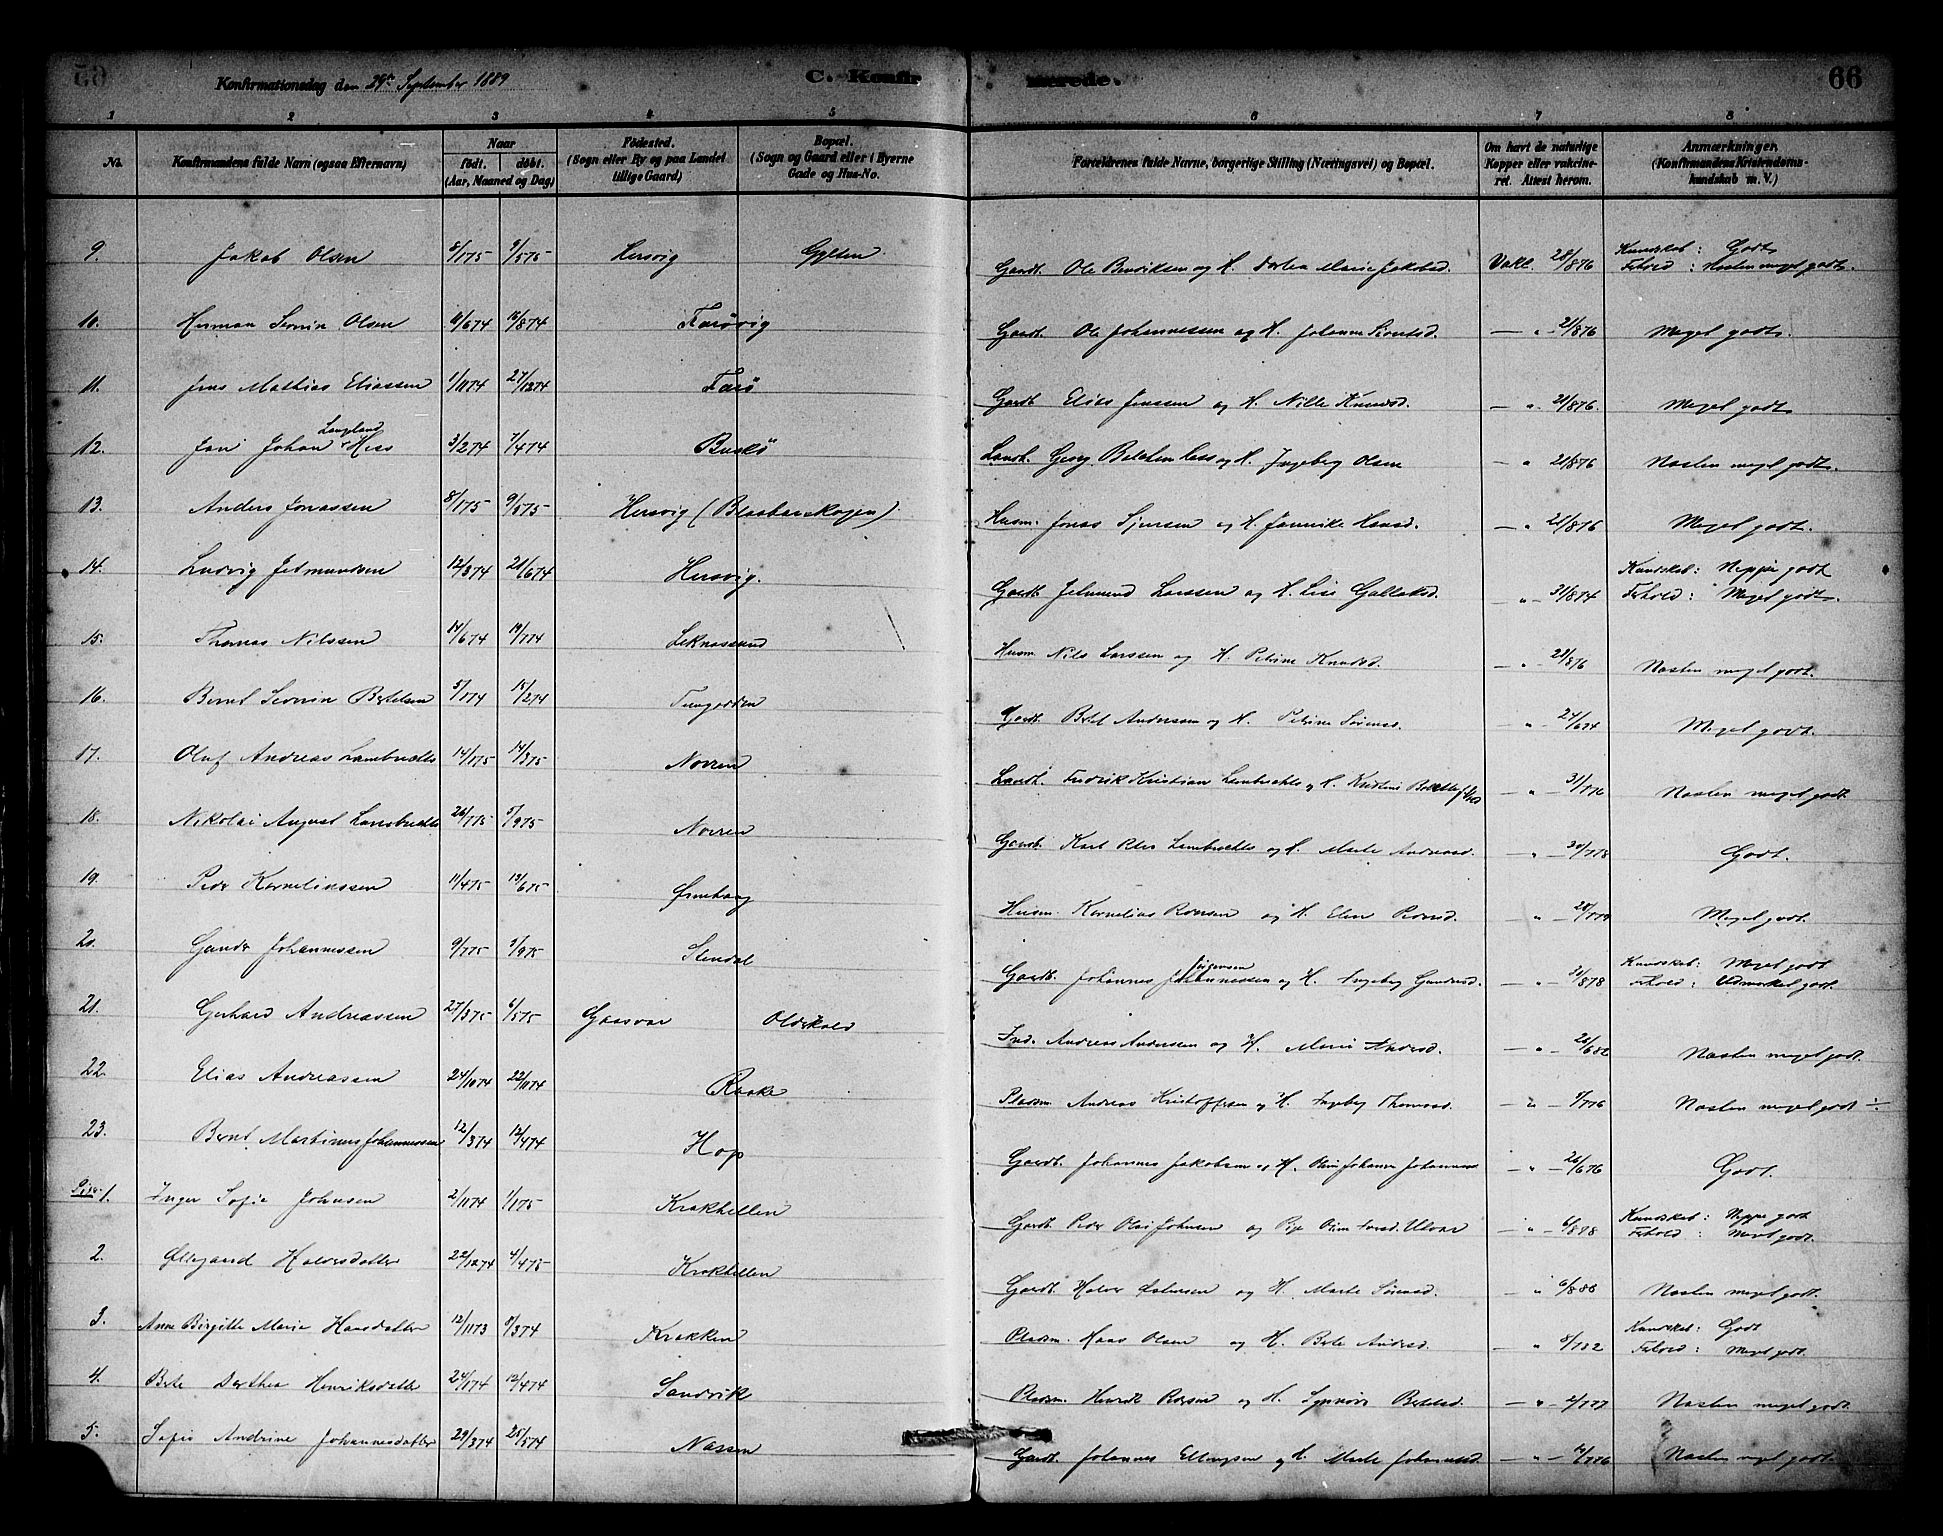 Konfirmationsdag den 29de September 1889
C. Konfirmerede.
66
1 2 3 4 5 6 7 8
No.
Konfirmandens fulde Navn (ogsaa Efternavn)
Naar
født. døbt.
(Aar, Maaned og Dag)
Fødested.
(Sogn eller By og paa Landet
tillige Gaard)
Bopæl.
(Sogn og Gaard eller i Byerne
Gade og Hus-No.
Forældrenes fulde Navne, borgerlige Stilling (Næringsvei) og Bopæl.
Om havt de naturlige
Kopper eller vakcine-
ret. Attest herom.
Anmærkninger.
(Konfirmandens Kristendoms-
kundskab m. V.)
9. Jakob Olsen 8/1 75 9/5 75 Hersvig Gylten Gaardb. Ole Bendiksen og H. Dortea Marie Jakobsd. Vakc. 28/8 76 Kundskab: Godt
Forhold: Næsten meget godt.
10. Herman Severin Olsen 11/6 74 16/8 74 Færøvig Gaardb. Ole Johannessen og H. Johanne Sivertsd. — " — 21/8 76 Meget godt.
11. Jens Mathias Eliassen 1/11 74 27/12 74 Færø Gaardb. Elias Jensen og H. Nille Knudsd. — " 21/8 76. Meget godt
12. Jan Johan Langland Hess 3/2 74 7/4 74 Buskø Landh. Georg Bolchen Hess og H. Ingeborg Olsen — " 21/8 76 Næsten meget godt.
13. Anders Jonassen 8/1 75 9/5 75 Hersvig (Blaabærskogen) Husm. Jonas Sjursen og H. Jannikke Hansd. — " 21/8 76 Meget godt.
14. Ludvig Jetmundsen 12/3 74 21/6 74 Hersvig. Gaardb. Jetmund Larssen og H. Lise Gullaksd. " — 31/8 74 Kundskab: Neppe godt
Forhold: Meget godt.
15. Thomas Nilssen 14/6 74 19/7 74 Leknessund Husm. Nils Larssen og H. Petrine Knudsd. — " 28/8 76 Næsten meget godt.
16. Bernt Severin Bertelsen 5/1 74 15/2 74 Tungodden Gaardb. Bertel Andersen og H. Petrine Sørensd. " — 24/6 74 Meget godt.
17. Oluf Andreas Lambrechts 14/1 75 14/3 75 Novren Landh. Fredrik Kristian Lambrechts og H. " — 31/7 76 Næsten meget godt
18. Nikolai August Lambrechts 26/7 75 5/9 75 Novren Gaardb. Karl Lambrechts og H. Marte Andersd. " — 30/7 78 Godt.
19. Peder Korneliussen 11/4 75 13/6 75 Ørnehaug Husm. Kornelius og H. Elen Pedersd. " Meget godt.
20. Gunder Johannessen 9/7 75 5/9 75 Stendal Gaardb. Johannes Jørgensen og H. Ingeborg Gundersd. " — 21/8 78 Kundskab: Meget godt
Forhold: Udmærket godt.
21. Gerhard Andreassen 27/3 75 6/5 75 Gaasvær Oldeskold Ind. Andreas Andersen og H. Marie — " — 28/6 82 Næsten meget godt.
22. Elias Andreassen 24/10 74 22/11 74 Raake Pladsm. Andreas Kristoffersen og H. Ingeborg Thomasd. — " — 7/7 76 Næsten meget godt ÷.
23. Bernt Martinus Johannessen 12/3 74 12/4 74 Hop Gaardb. Johannes Jakobsen og H. Johanne Johannesd — " — 26/6 76 Godt.
Piger 1. Inger Sofie Johnsen 2/11 74 1/1 75 Krakhellen Gaardb. Peder Olai Johnsen og Pige Ulvær — " — 6/8 88 Kundskab: Neppe godt
Forhold: Meget godt.
2. Øllegaard Halvorsdatter 22/12 74 4/4 75 Krakhellen Gaardb. Halvor og H. Marte Sørensd. " 6/8 88 Næsten meget godt.
3. Anne Birgitte Marie Hansdatter 12/11 73 8/3 74 Krakken Pladsm. Hans Olsen og H. Berte Andersd. — " 8/7 82 Kundskab: Godt
Forhold: Meget godt.
4. Berte Dorthea Henriksdatter 24/1 74 12/4 74 Sandvik Pladsm. Henrik og H. Synnøve Bertelsd. — " — 2/7 77 Næsten meget godt
5. Sofie Andrine Johannesdatter 29/3 74 25/5 74 Nessen Gaardb. Johannes Ellingsen og H. Marte Johannesd. — " — Næsten meget godt.